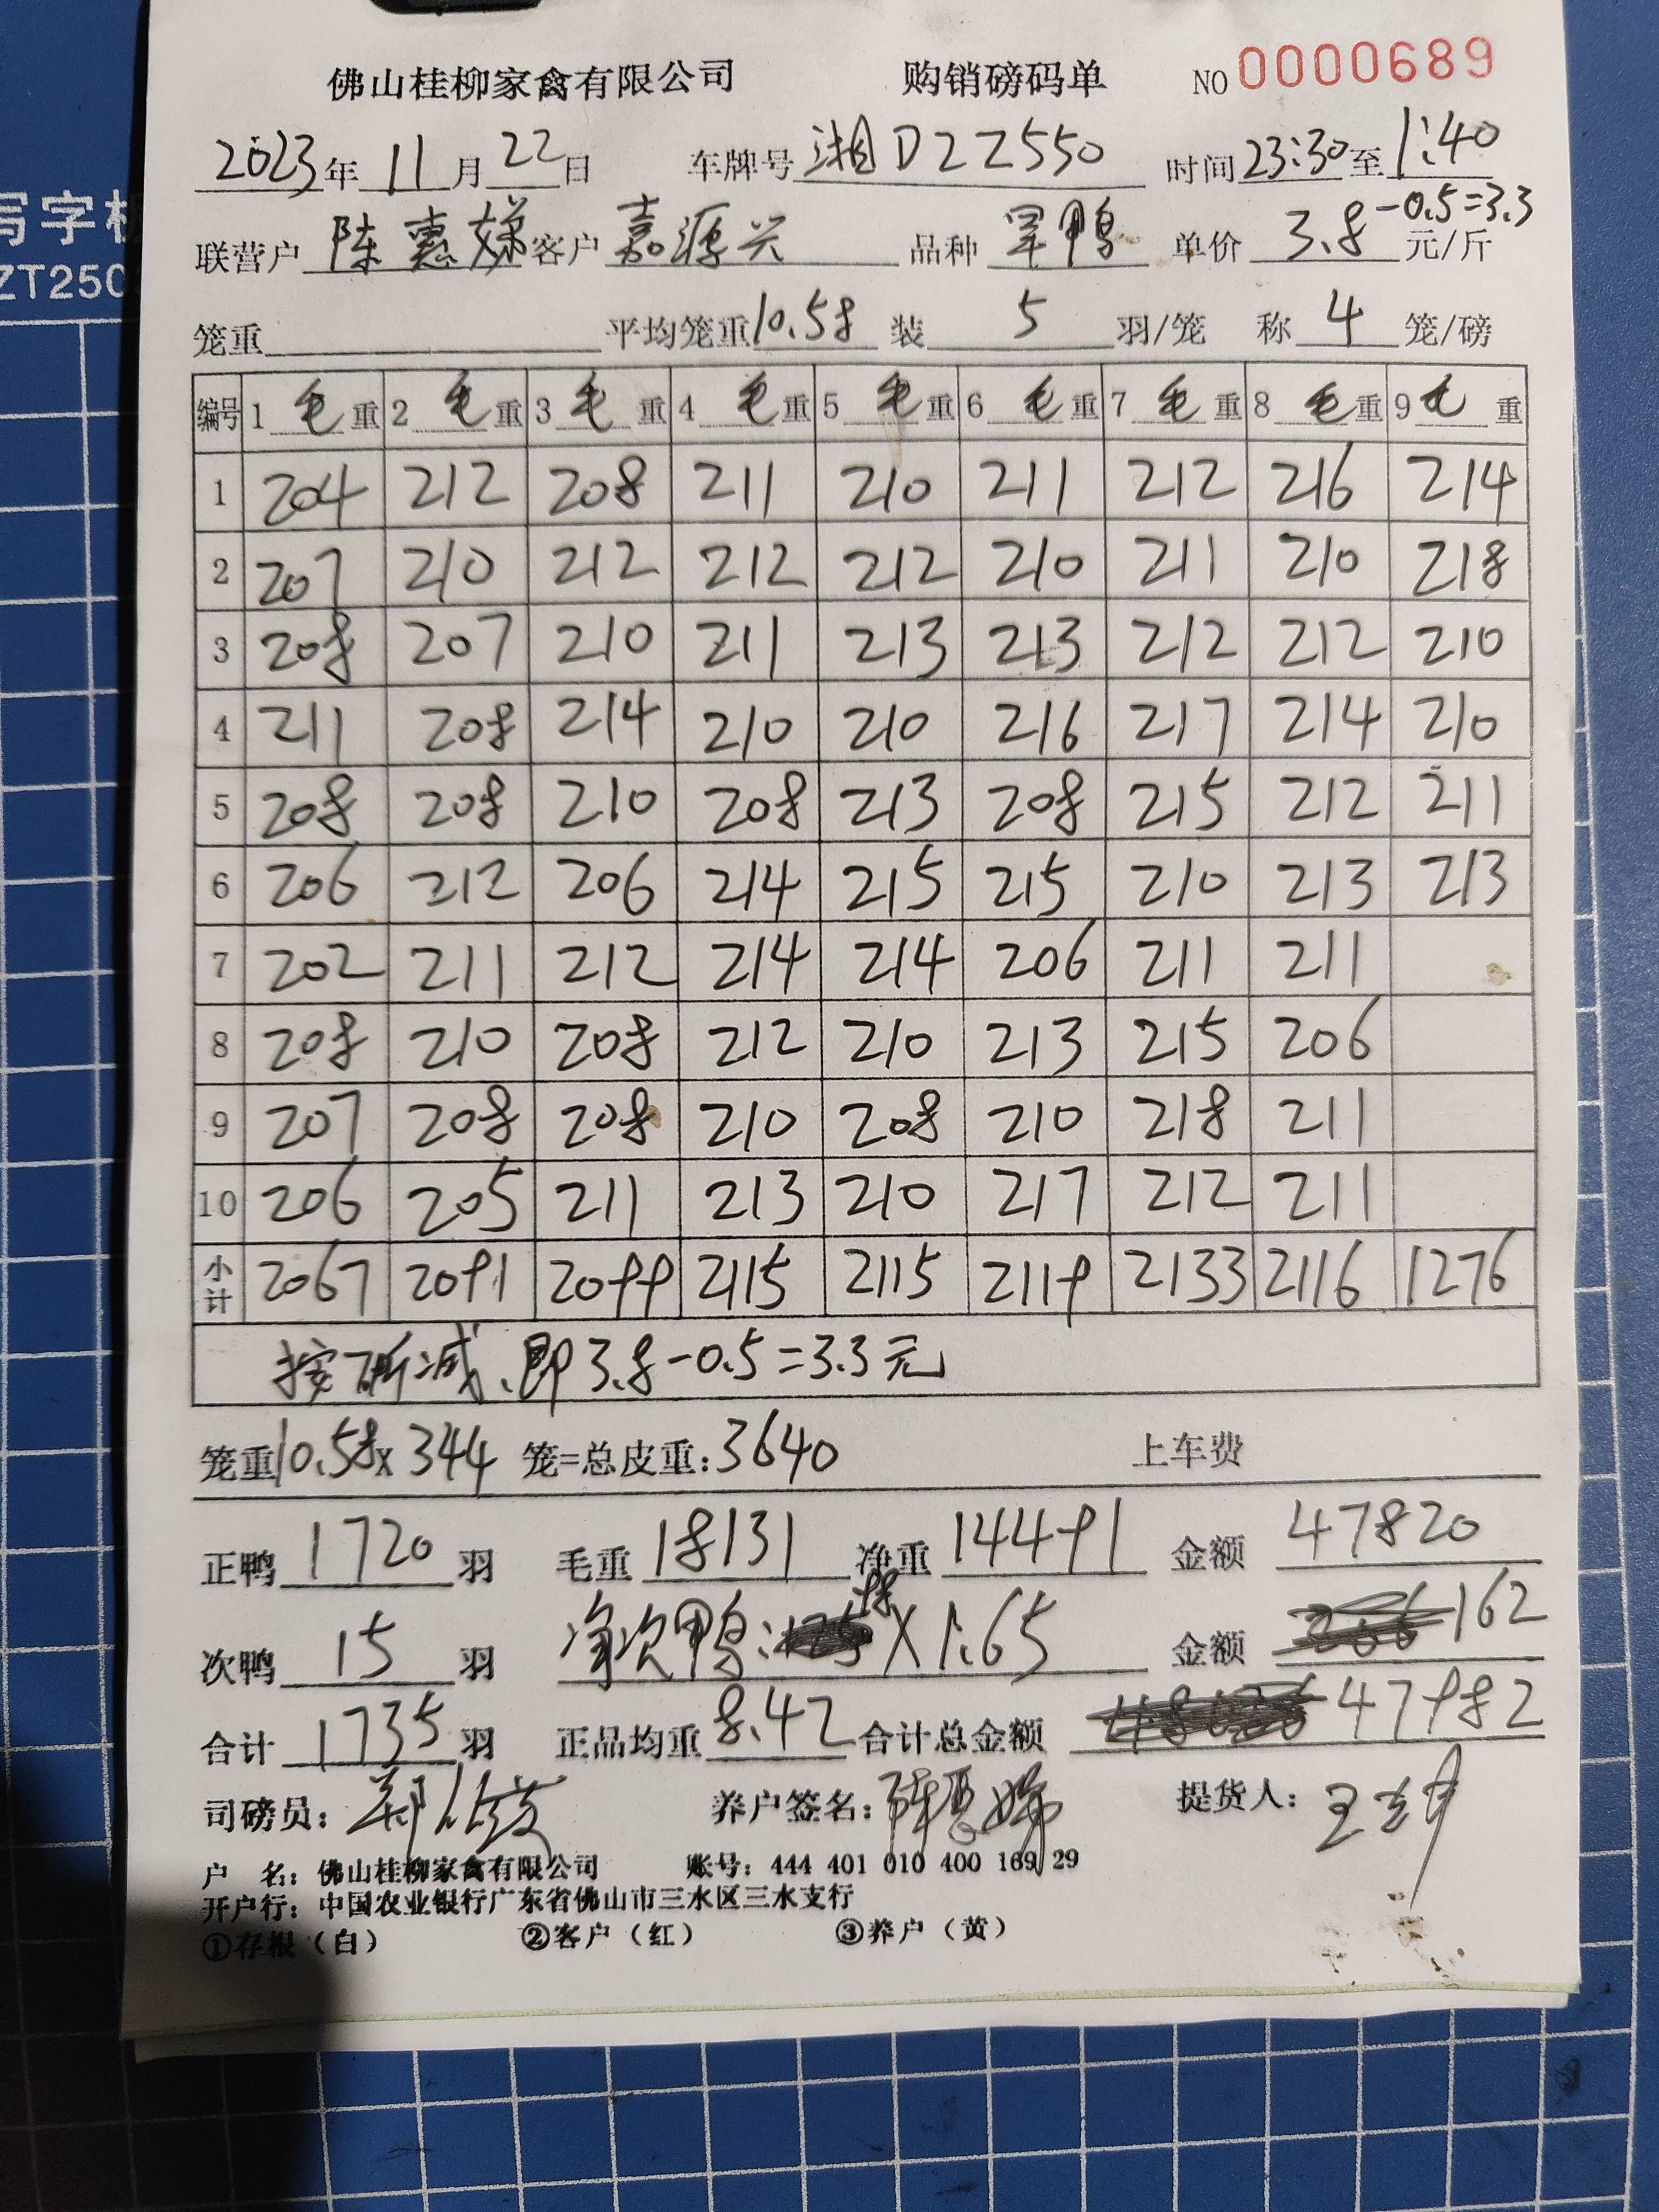 佛山桂柳家禽有限公司 购销磅码单 NO 0000689
2023年 11月 22日 车牌号 湘D2Z550 时间 23:30 至 1:40
联营户 陈惠娣 客户 嘉源兴 品种 旱鸭 单价 3.8 -0.5=3.3 元/斤
笼重 平均笼重 10.58 装 5 羽/笼 称 4 笼/磅
编号 1 毛 重 2 毛 重 3 毛 重 4 毛 重 5 毛 重 6 毛 重 7 毛 重 8 毛 重 9 毛 重
1 204 212 208 211 210 211 212 216 214
2 207 210 212 212 212 210 211 210 218
3 208 207 210 211 213 213 212 212 210
4 211 208 214 210 210 216 217 214 210
5 208 208 210 208 213 208 215 212 211
6 206 212 206 214 215 215 210 213 213
7 202 211 212 214 214 206 211 211
8 208 210 208 212 210 213 215 206
9 207 208 208 210 208 210 218 211
10 206 205 211 213 210 217 212 211
小计 2067 2091 2099 2115 2115 2119 2133 2116 1276
按斫减、即3.8-0.5=3.3元
笼重 10.58 x 344 笼=总皮重: 3640 上车费
正鸭 1720 羽 毛重 18131 净重 14491 金额 47820
次鸭 15 羽 净次鸭: 98 X 1.65 金额 162
合计 1735 羽 正品均重 8.42 合计总金额 47982
司磅员: 养户签名: 陈惠娣 提货人:
户 名: 佛山桂柳家禽有限公司 账号: 444 401 010 400 169 29
开户行: 中国农业银行广东省佛山市三水区三水支行
①存根（白） ②客户（红） ③养户（黄）
写字板
ZT250